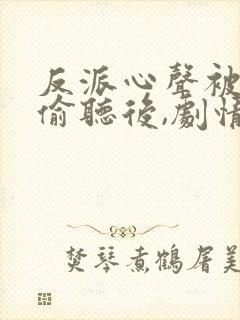 反派心聲被
偷聽後,劇情
焚琴煮鶴屠美